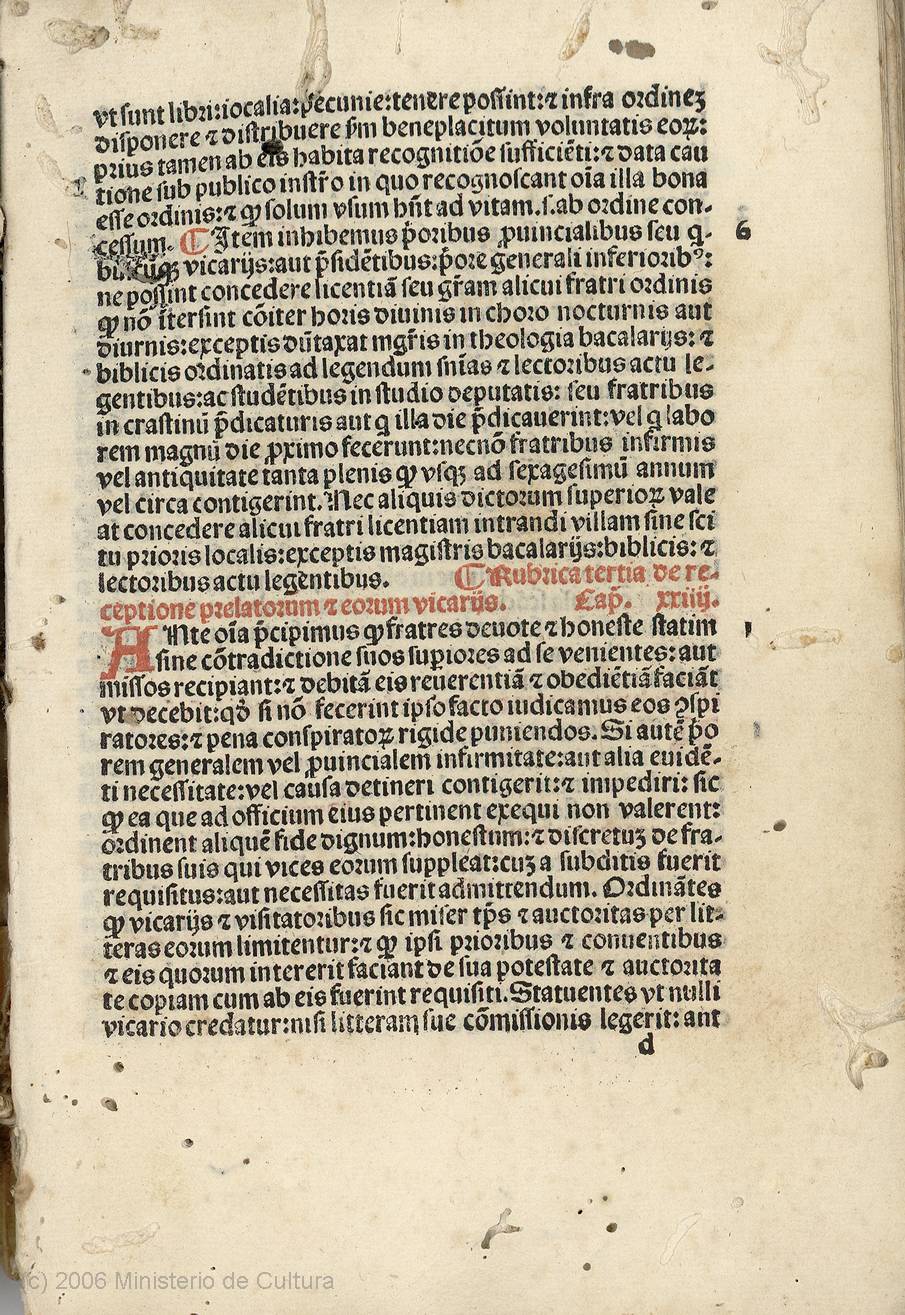 vt sunt libri:iocalia:pecunie:tenere possint:⁊ infra ordineʒ
disponere ⁊ distribuere ẜm beneplacitum voluntatis eoꝝ:
prius tamen ab eis habita recognitiõe sufficiẽti:⁊ data cau
tione sub publico instr̃o in quo recognoscant oĩa illa bona
esse ordinis:⁊ ꝙ solum vsum hñt ad vitam.s.ab ordine con-
cessum. ¶ Item inhibemus p̃oribus ꝓuincialibus seu q̃- 6
bu cũqꝫ vicarijs:aut p̃sidẽtibus:p̃ore generali inferioribꝰ:
ne possint concedere licentiã seu gr̃am alicui fratri ordinis
ꝙ nõ ĩtersint cõiter horis diuinis in choro nocturnis aut
diurnis:exceptis dũtaxat mgr̃is in theologia bacalarijs: ⁊
biblicis ordinatis ad legendum sñias ⁊ lectoribus actu le-
gentibus:ac studẽtibus in studio deputatis: seu fratribus
in crastinũ p̃dicaturis aut q̃ illa die p̃dicauerint:vel q̃ labo
rem magnũ die ꝓximo fecerunt:necnõ fratribus infirmis
vel antiquitate tanta plenis ꝙ vsqꝫ ad sexagesimũ annum
vel circa contigerint. Nec aliquis dictorum superioꝝ vale
at concedere alicui fratri licentiam intrandi villam sine sci
tu prioris localis:exceptis magistris bacalarijs:biblicis: ⁊
lectoribus actu legẽntibus. ¶ Rubrica tertia de re-
ceptione prelatorum ⁊ eorum vicarijs. Cap̃. xxiiij.
ANte oĩa p̃cipimus ꝙ fratres deuote ⁊ honeste statim 1
sine cõtradictione suos supiores ad se venientes: aut
missos recipiant:⁊ debitã eis reuerentiã ⁊ obediẽtiã faciãt
vt decebit:qd̃ si nõ fecerint ipso facto iudicamus eos ꝯspi
ratores:⁊ pena conspiratoꝝ rigide puniendos. Si autẽ p̃o
rem generalem vel ꝓuincialem infirmitate:aut alia euidẽ-
ti necessitate:vel causa detineri contigerit:⁊ impediri: sic
ꝙ ea que ad officium eius pertinent exequi non valerent:
ordinent aliquẽ fide dignum:honestum:⁊ discretuʒ de fra-
tribus suis qui vices eorum suppleat:cuʒ a subditis fuerit
requisitus:aut necessitas fuerit admittendum. Ordinãtes
ꝙ vicarijs ⁊ visitatoribus sic miser tp̃s ⁊ auctoritas per lit-
teras eorum limitentur:⁊ ꝙ ipsi prioribus ⁊ conuentibus
⁊ eis quorum intererit faciant de sua potestate ⁊ auctorita
te copiam cum ab eis fuerint requisiti. Statuentes vt nulli
vicario credatur:nisi litteram sue cõmissionis legerit: aut
d
(c) 2006 Ministerio de Cultura